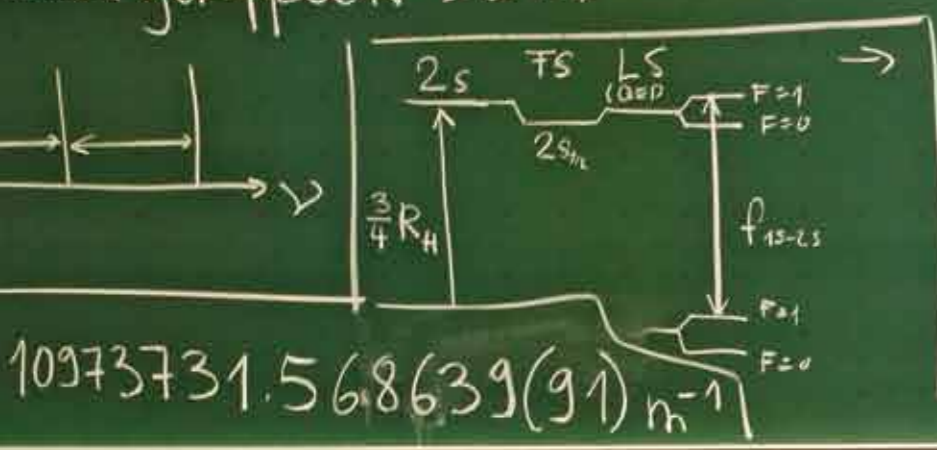 2s FS LS
(QED)
F=1
F=0
2s₁/₂
ν
3/4 R_H
f₁s-₂s
F=1
F=0
10973731.568639(91) m⁻¹